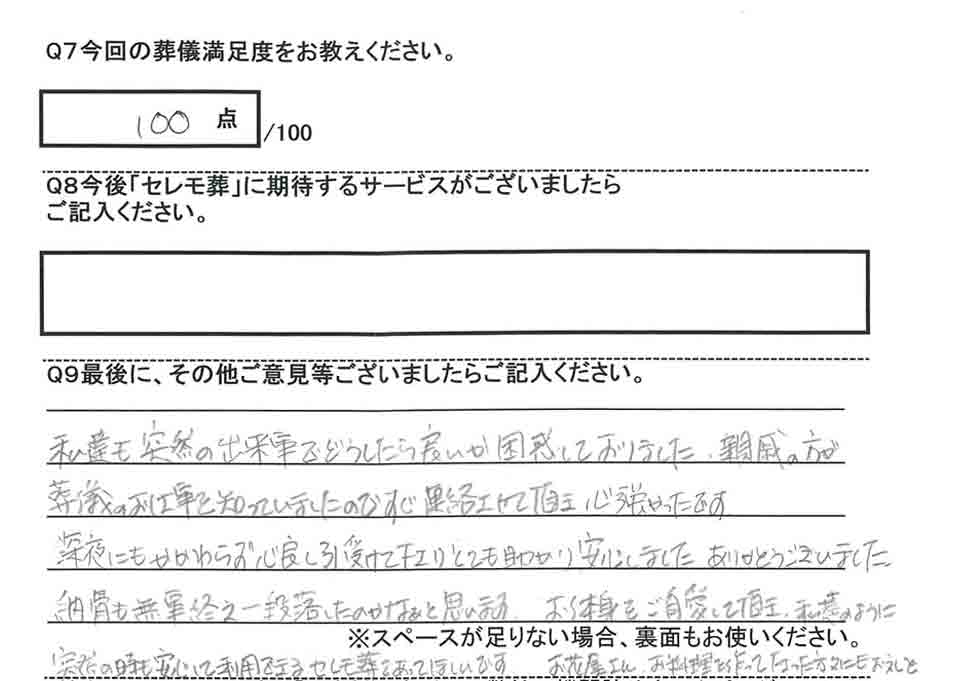 Q7今回の葬儀満足度をお教えください。
100 点 /100
Q8今後「セレモ葬」に期待するサービスがございましたら
ご記入ください。
Q9最後に、その他ご意見等ございましたらご記入ください。
私達も突然の出来事でどうしたら良いか困惑しておりました。親戚の方が
葬儀のお仕事を知っていましたのですぐ連絡させて頂き心強かったです
深夜にもかかわらず心良く引受けて下さりとても助かり安心しました ありがとうございました。
納骨も無事終え一段落したのかなぁと思います お体をご自愛して頂き、私達のように
※スペースが足りない場合、裏面もお使いください。
突然の時も安心して利用できるセレモ葬であってほしいです お花屋さん、お料理を作って下さった方々にも